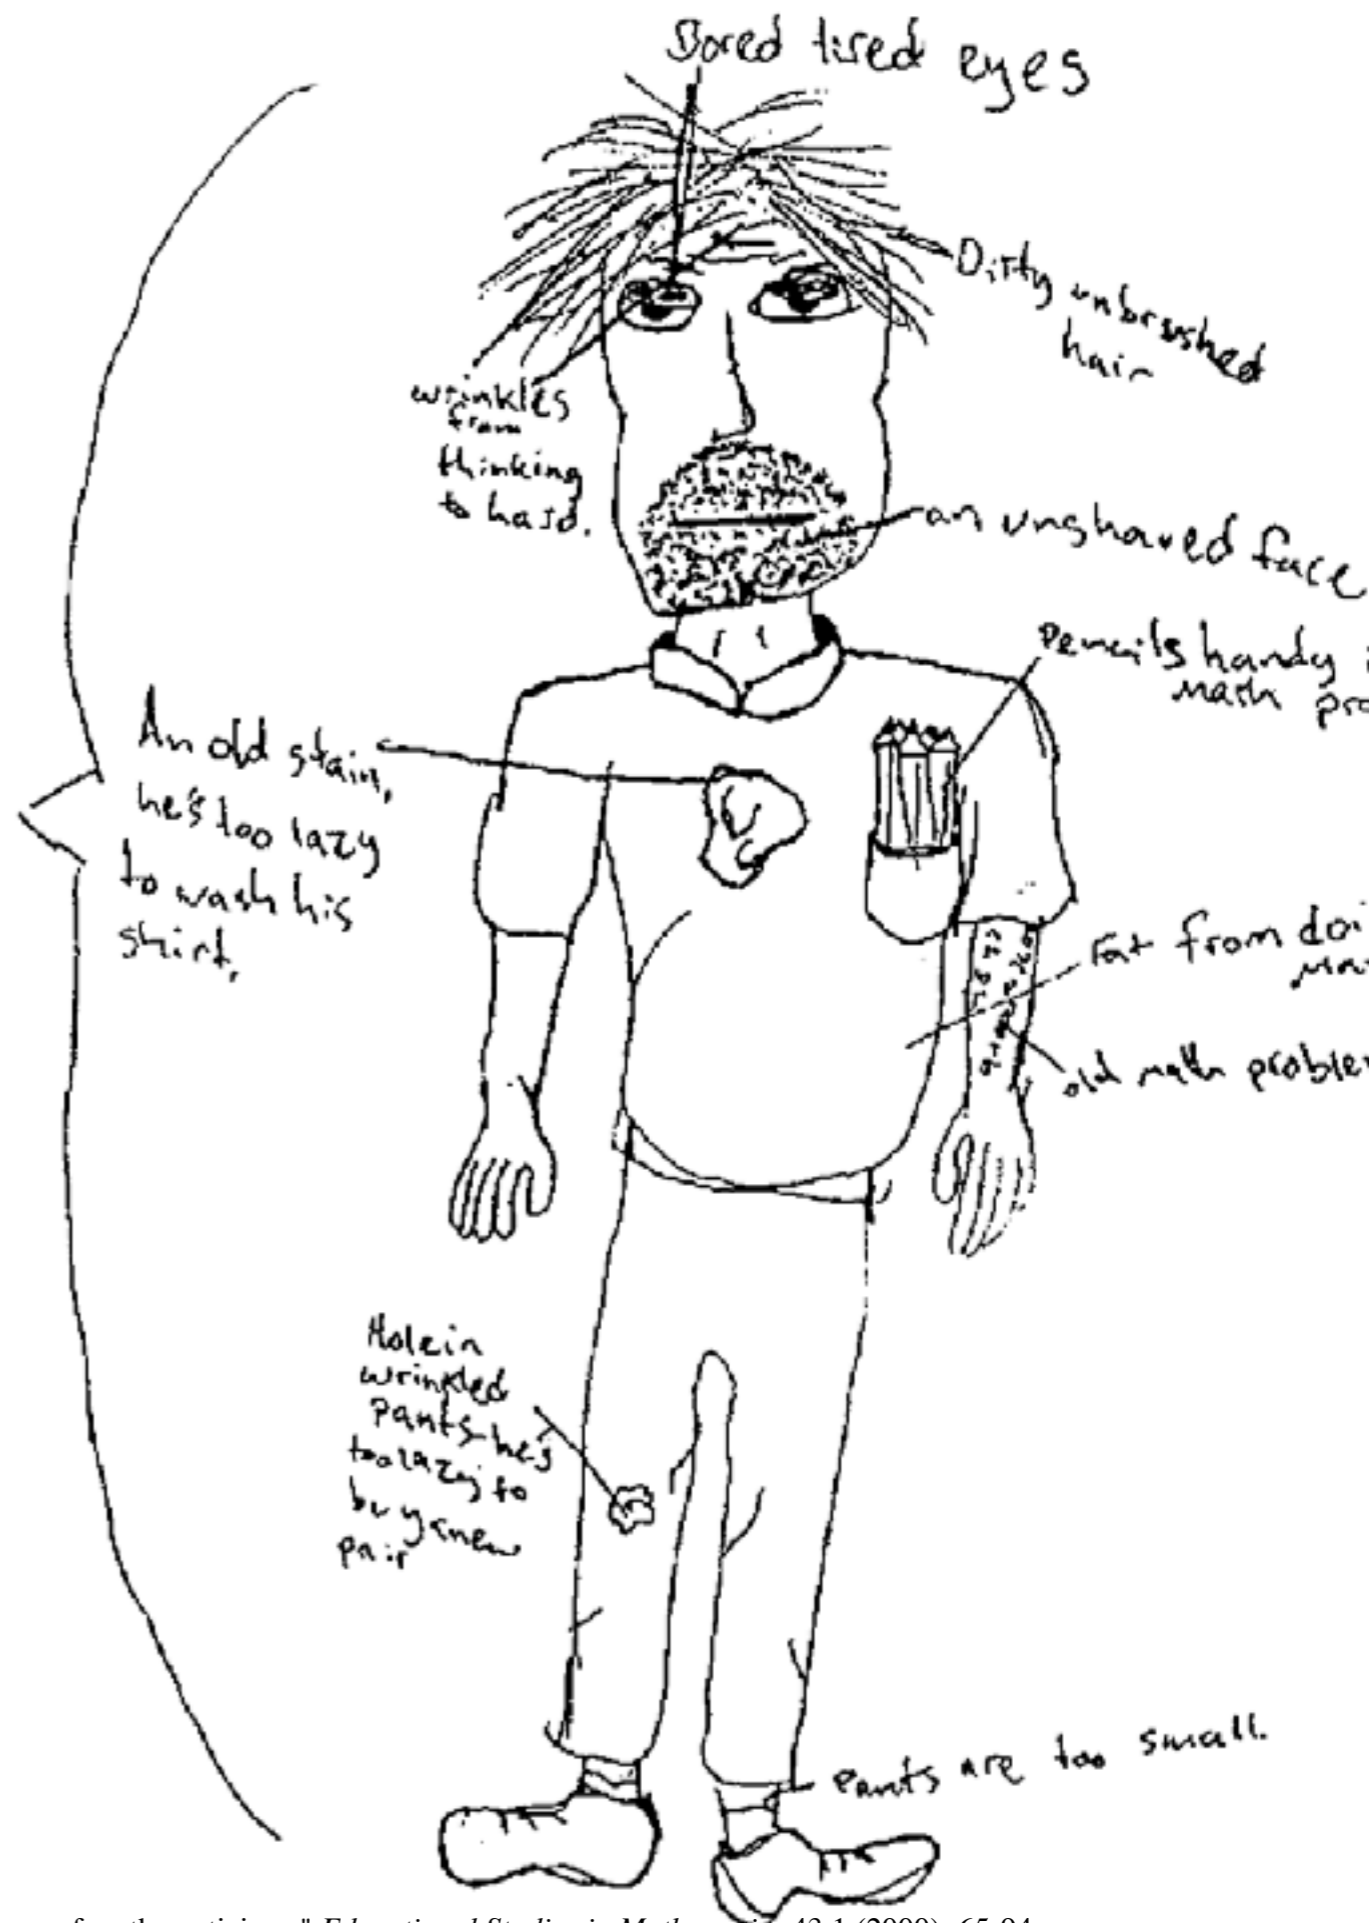 Bored tired eyes
Dirty unbrushed
hair
wrinkles
from
thinking
to hard.
an unshaved face
Pencils handy i
math pro
An old stain,
he's too lazy
to wash his
shirt.
Fat from doi
ma
old math proble
Hole in
wrinkled
pants he's
too lazy to
buy a new
pair
Pants are too small.
Educational Studies in Mathematics 43.1 (2000): 65-94